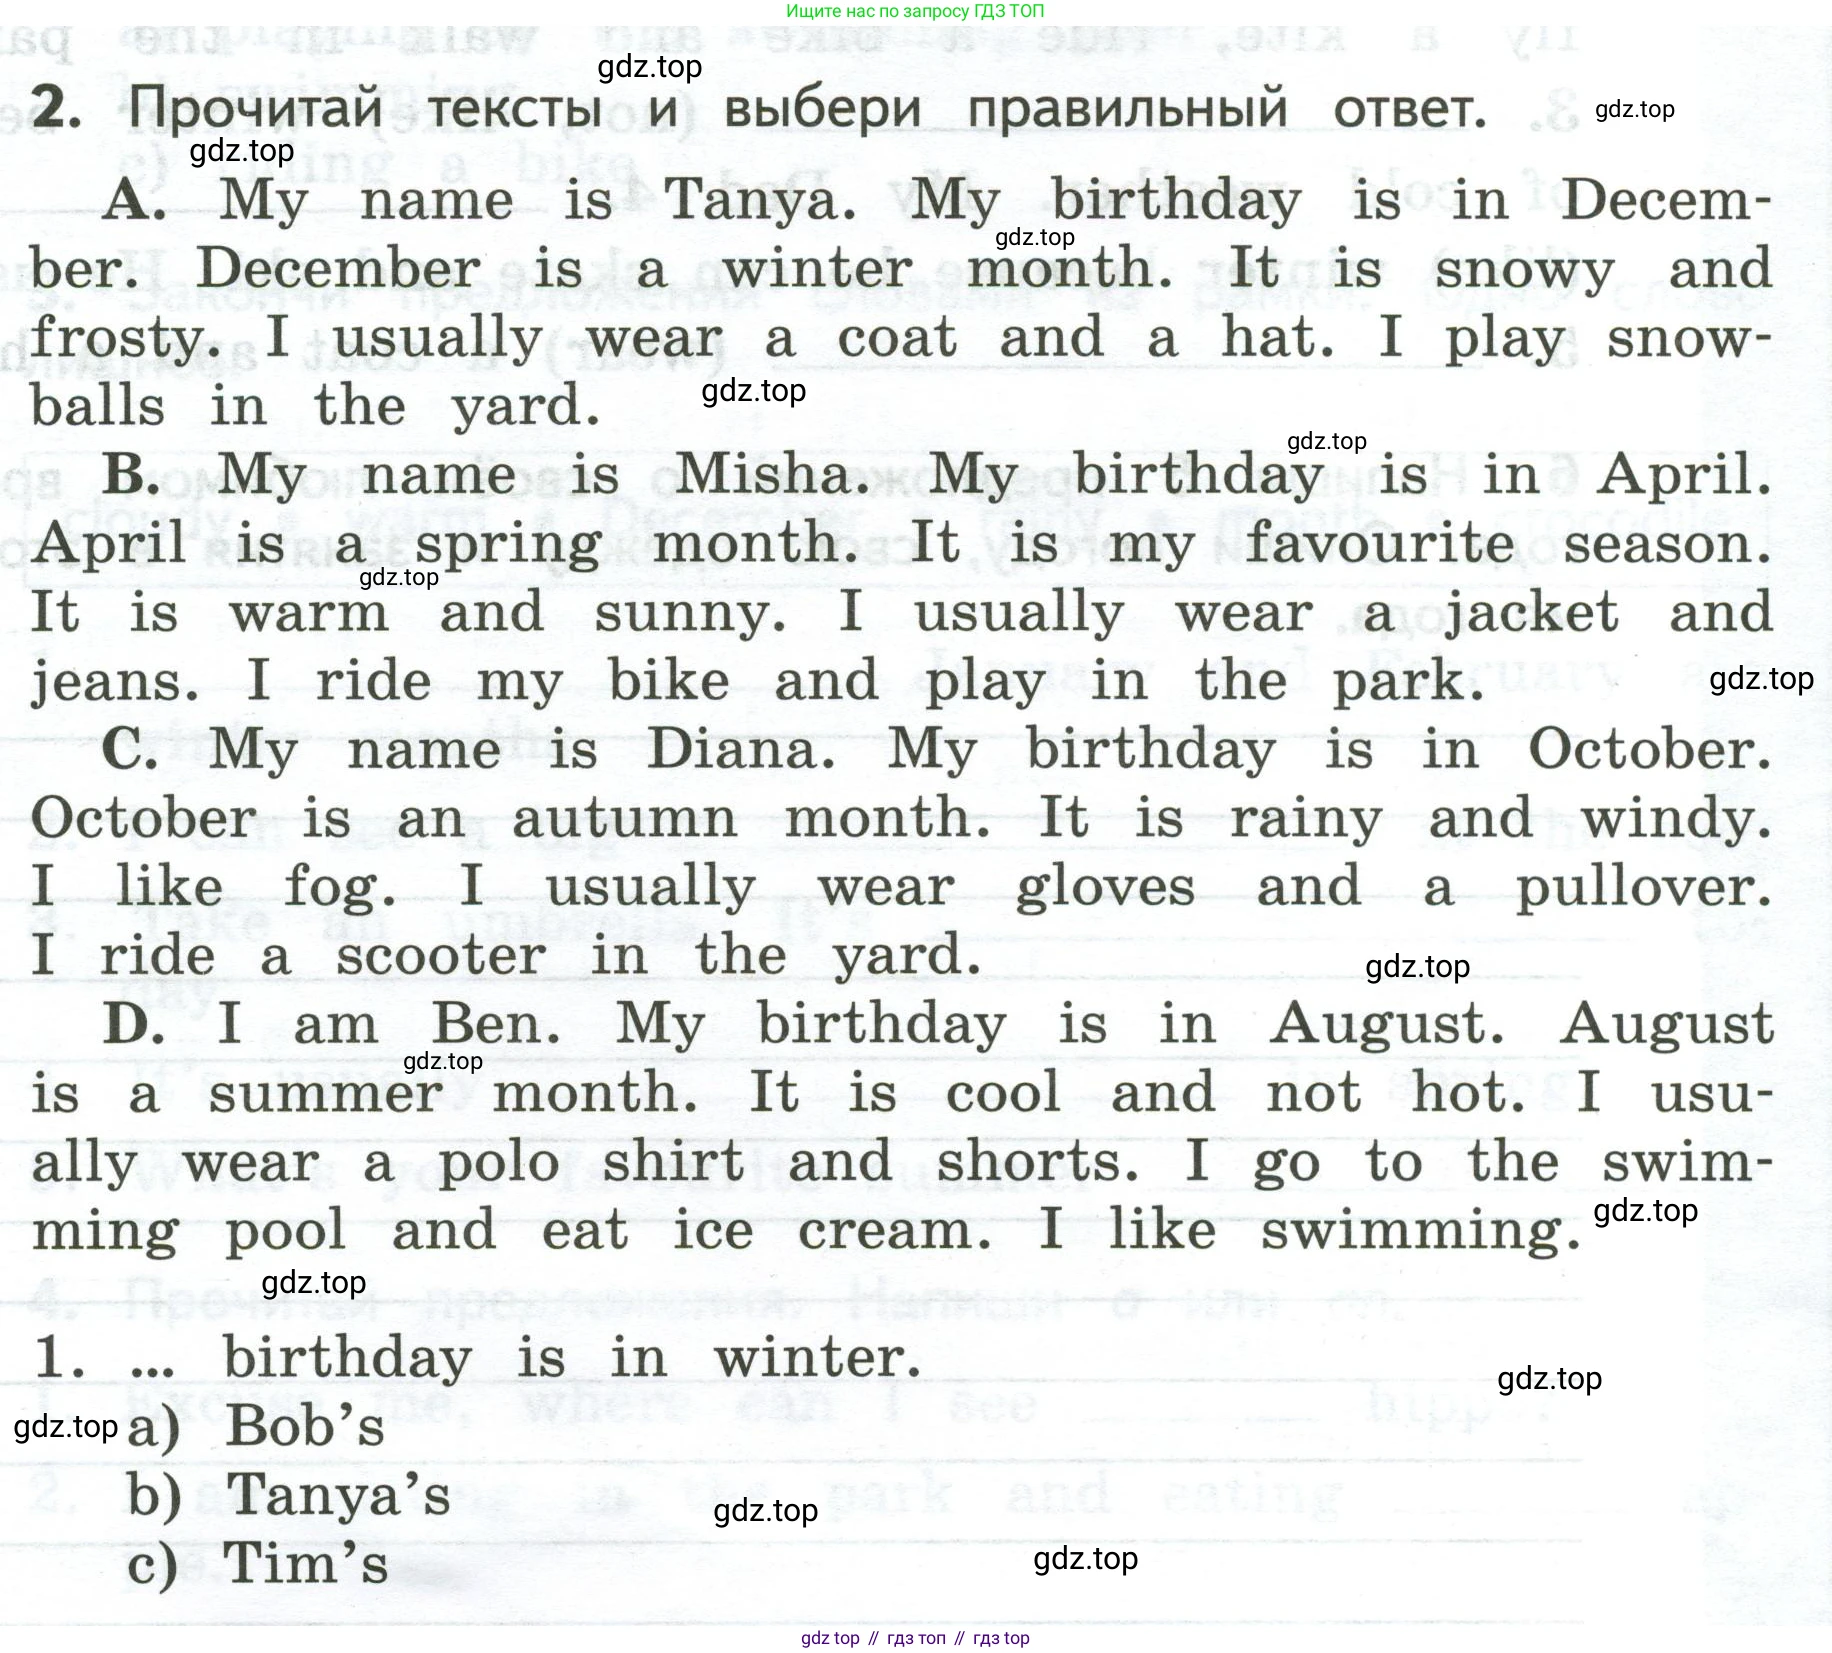 Ищите нас по запросу ГДЗ ТОП
gdz.top
2. Прочитай тексты и выбери правильный ответ. gdz.top
gdz.top
A. My name is Tanya. My birthday is in Decem-
gdz.top
ber. December is a winter month. It is snowy and
frosty. I usually wear a coat and a hat. I play snow-
balls in the yard. gdz.top
gdz.top
B. My name is Misha. My birthday is in April.
April is a spring month. It is my favourite season.
gdz.top
It is warm and sunny. I usually wear a jacket and
jeans. I ride my bike and play in the park. gdz.top
C. My name is Diana. My birthday is in October.
October is an autumn month. It is rainy and windy.
I like fog. I usually wear gloves and a pullover.
I ride a scooter in the yard. gdz.top
D. I am Ben. My birthday is in August. August
gdz.top
is a summer month. It is cool and not hot. I usu-
ally wear a polo shirt and shorts. I go to the swim-
ming pool and eat ice cream. I like swimming. gdz.top
gdz.top
1. ... birthday is in winter.
gdz.top
gdz.top a) Bob's
b) Tanya's gdz.top
c) Tim's gdz.top
gdz top // гдз топ // гдз top